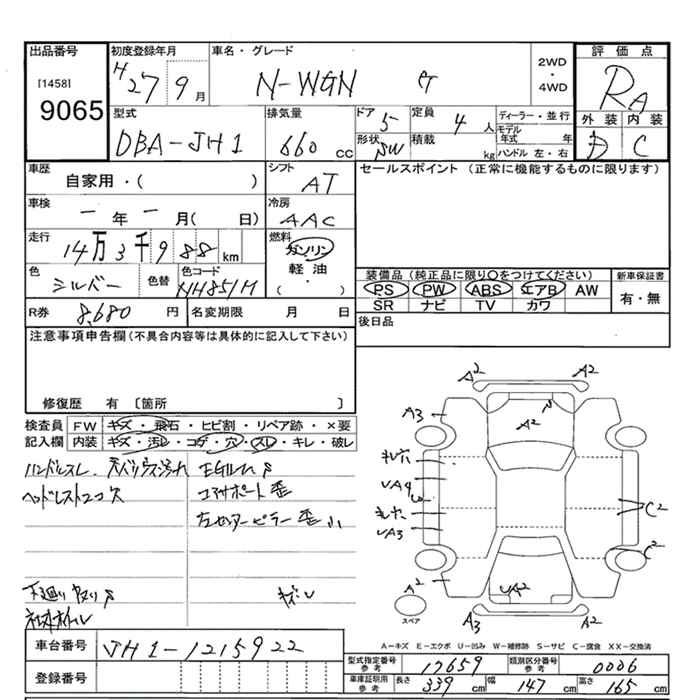 出品番号 初度登録年月 車名・グレード 2WD・4WD 評価点
[1458] H27 9月 N-WGN G RA
9065
型式 排気量 ドア 定員 ディーラー・並行 外装 内装
DBA-JH1 660 cc 5 4人 モデル年式 年 D C
形状 SW 積載 kg ハンドル 左・右
車歴 シフト セールスポイント (正常に機能するものに限ります)
自家用・( ) AT
車検 冷房
ー年ー月( 日) AAC
走行 燃料
14万3千988km ガソリン
軽油
・( )
色 色替 色コード
シルバー NH851M
装備品(純正品に限り〇をつけてください) 新車保証書
PS PW ABS エアB AW 有・無
SR ナビ TV カワ
R券 8,680 円 名変期限 月 日 後日品
注意事項申告欄(不具合内容等は具体的に記入して下さい)
修復歴 有〔箇所 〕
検査員 FW キズ・飛石・ヒビ割・リペア跡・×要
記入欄 内装 キズ・汚レ・コゲ・穴・スレ・キレ・破レ
ハンドルスレ
ヘッドレスト2コ欠
コアサポート歪
左センターピラー歪 小
下廻り サビ
A2 A2
A3 A2
UA4
UA3
C2
C2
A2 UA2
A3 A2
スペア
A-キズ E-エクボ U-凹ミ W-補修跡 S-サビ C-腐食 XX-交換済
車台番号 JH1-1215922
登録番号
型式指定番号参考 17659 類別区分番号参考 0006
車庫証明用参考 長さ 339 cm 幅 147 cm 高さ 165 cm